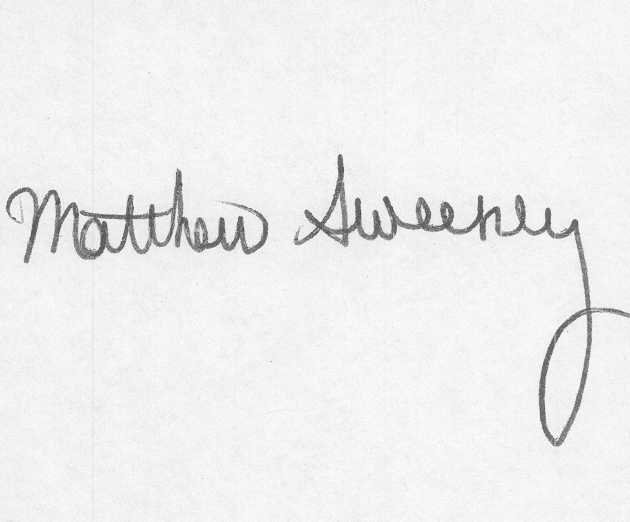 Matthew Sweekley